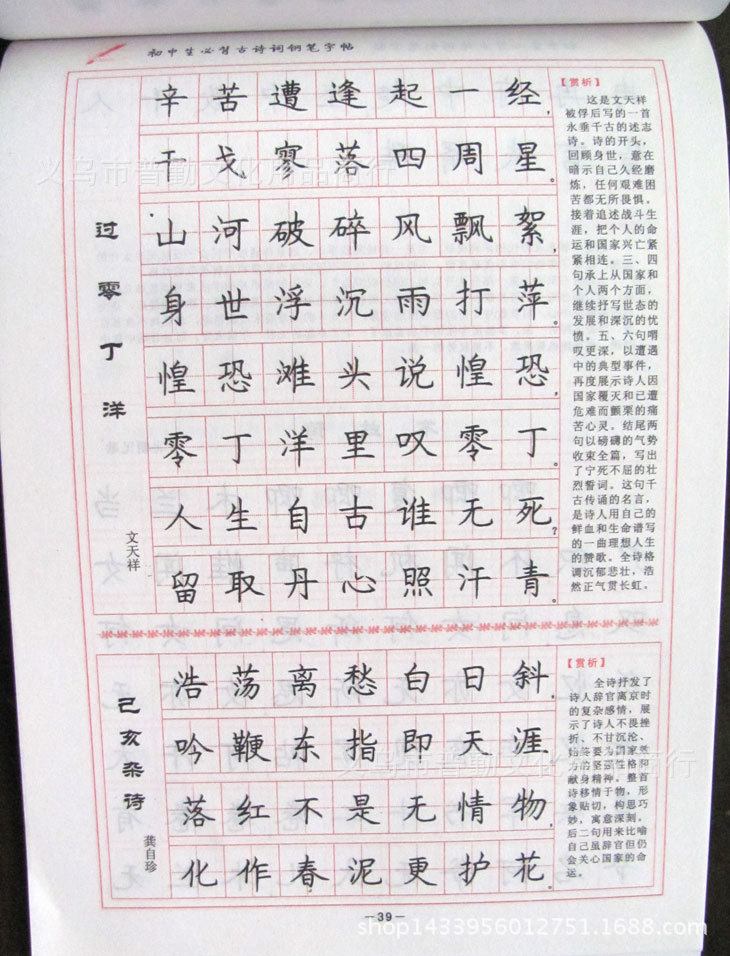 初中生必背古诗词钢笔字帖
过零丁洋
文天祥
辛苦遭逢起一经，
干戈寥落四周星。
山河破碎风飘絮，
身世浮沉雨打萍。
惶恐滩头说惶恐，
零丁洋里叹零丁。
人生自古谁无死？
留取丹心照汗青。
【赏析】
这是文天祥
被俘后写的一首
永垂千古的述志
诗。诗的开头，
回顾身世，意在
暗示自己久经磨
炼，任何艰难困
苦都无所畏惧。
接着追述战斗生
涯，把个人的命
运和国家兴亡紧
紧相连。三、四
句承上从国家和
个人两个方面，
继续抒写世态的
发展和深沉的忧
愤。五、六句喟
叹更深，以遭遇
中的典型事件，
再度展示诗人因
国家覆灭和已遭
危难而颤栗的痛
苦心灵。结尾两
句以磅礴的气势
收束全篇，写出
了宁死不屈的壮
烈誓词。这句千
古传诵的名言，
是诗人用自己的
鲜血和生命谱写
的一曲理想人生
的赞歌。全诗格
调沉郁悲壮，浩
然正气贯长虹。
己亥杂诗
龚自珍
浩荡离愁白日斜，
吟鞭东指即天涯。
落红不是无情物，
化作春泥更护花。
【赏析】
全诗抒发了
诗人辞官离京时
的复杂感情，展
示了诗人不畏挫
折、不甘沉沦、
始终要为国家效
力的坚强性格和
献身精神。整首
诗移情于物，形
象贴切，构思巧
妙，寓意深刻。
后二句用来比喻
自己虽辞官但仍
会关心国家的命
运。
—39—
shop1433956012751.1688.com